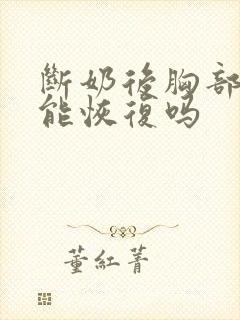 斷奶後胸部
能恢復吗
董紅菁